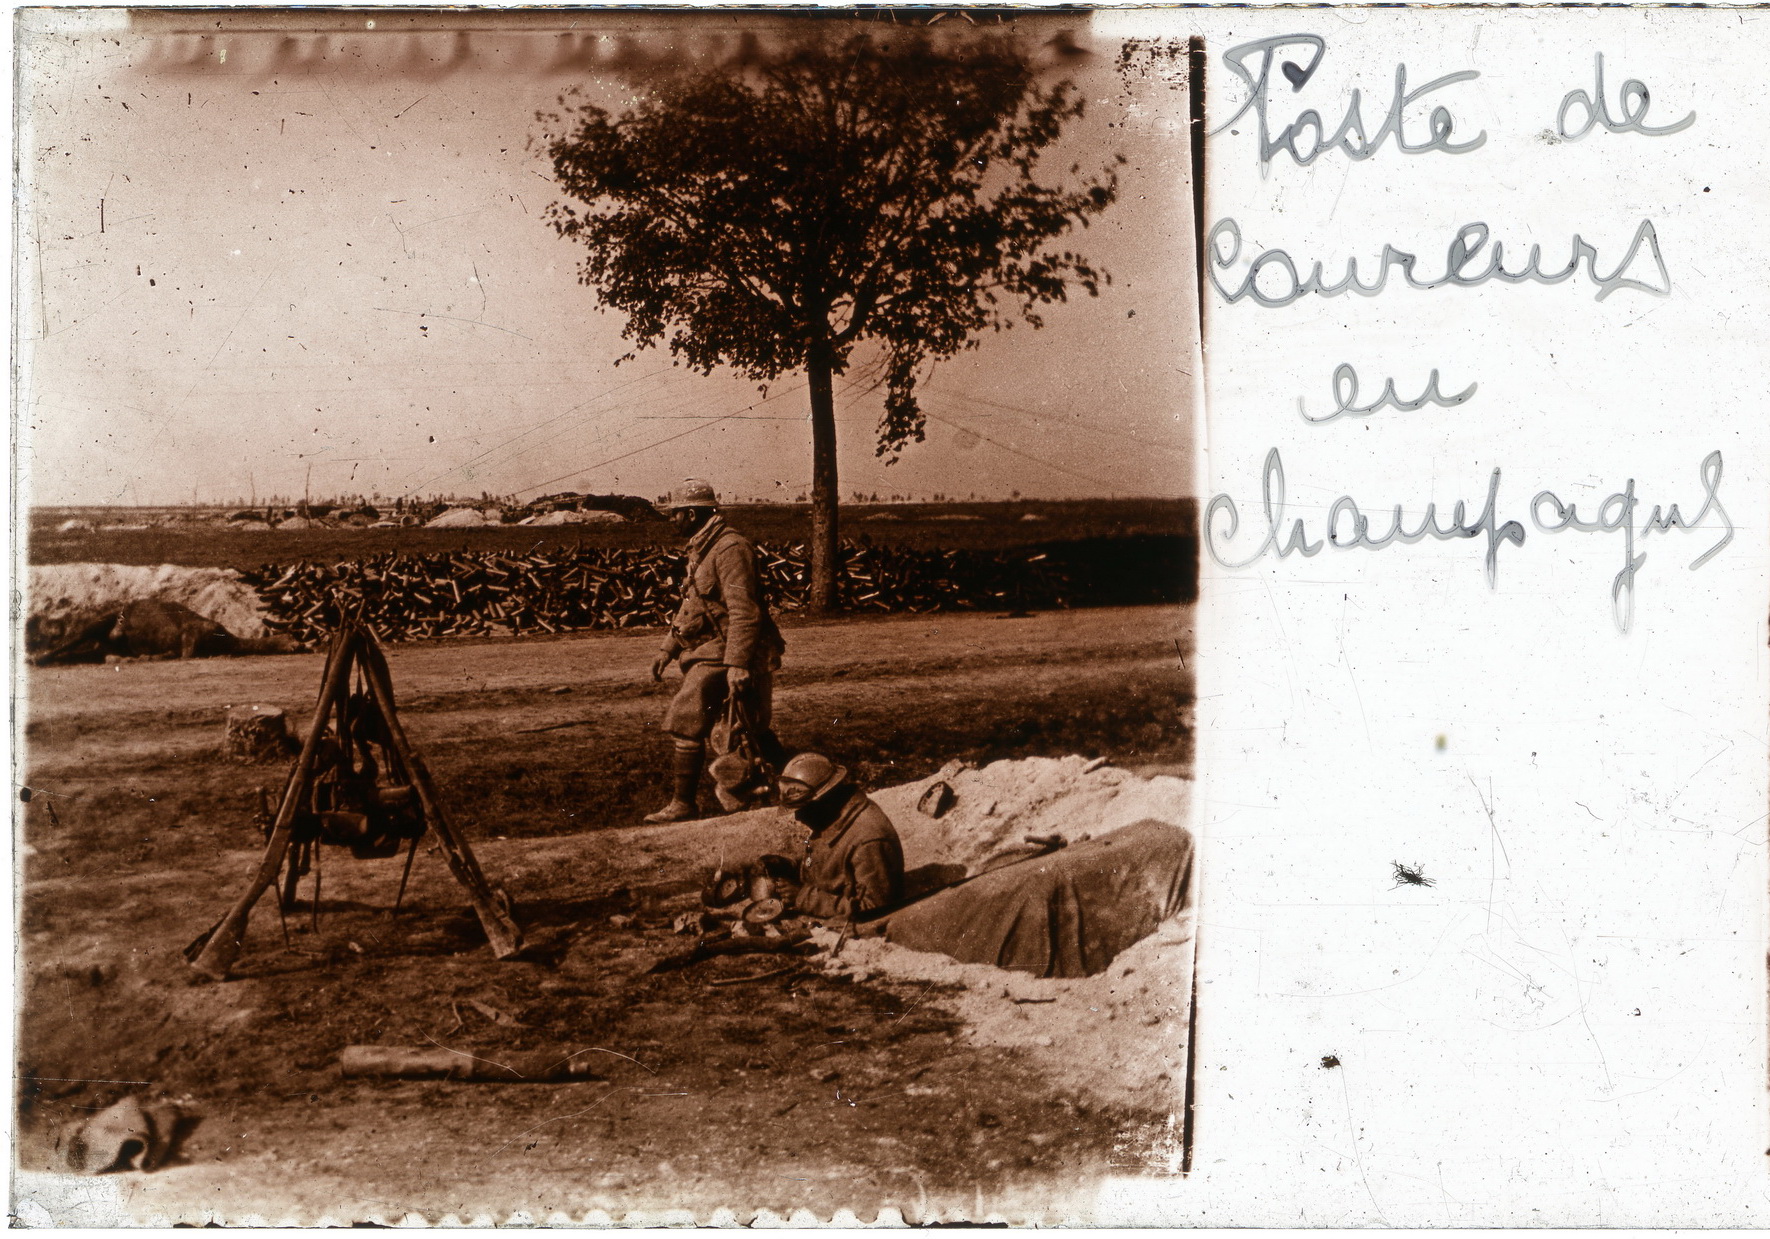 Poste de
Coureurs
en
Champagne